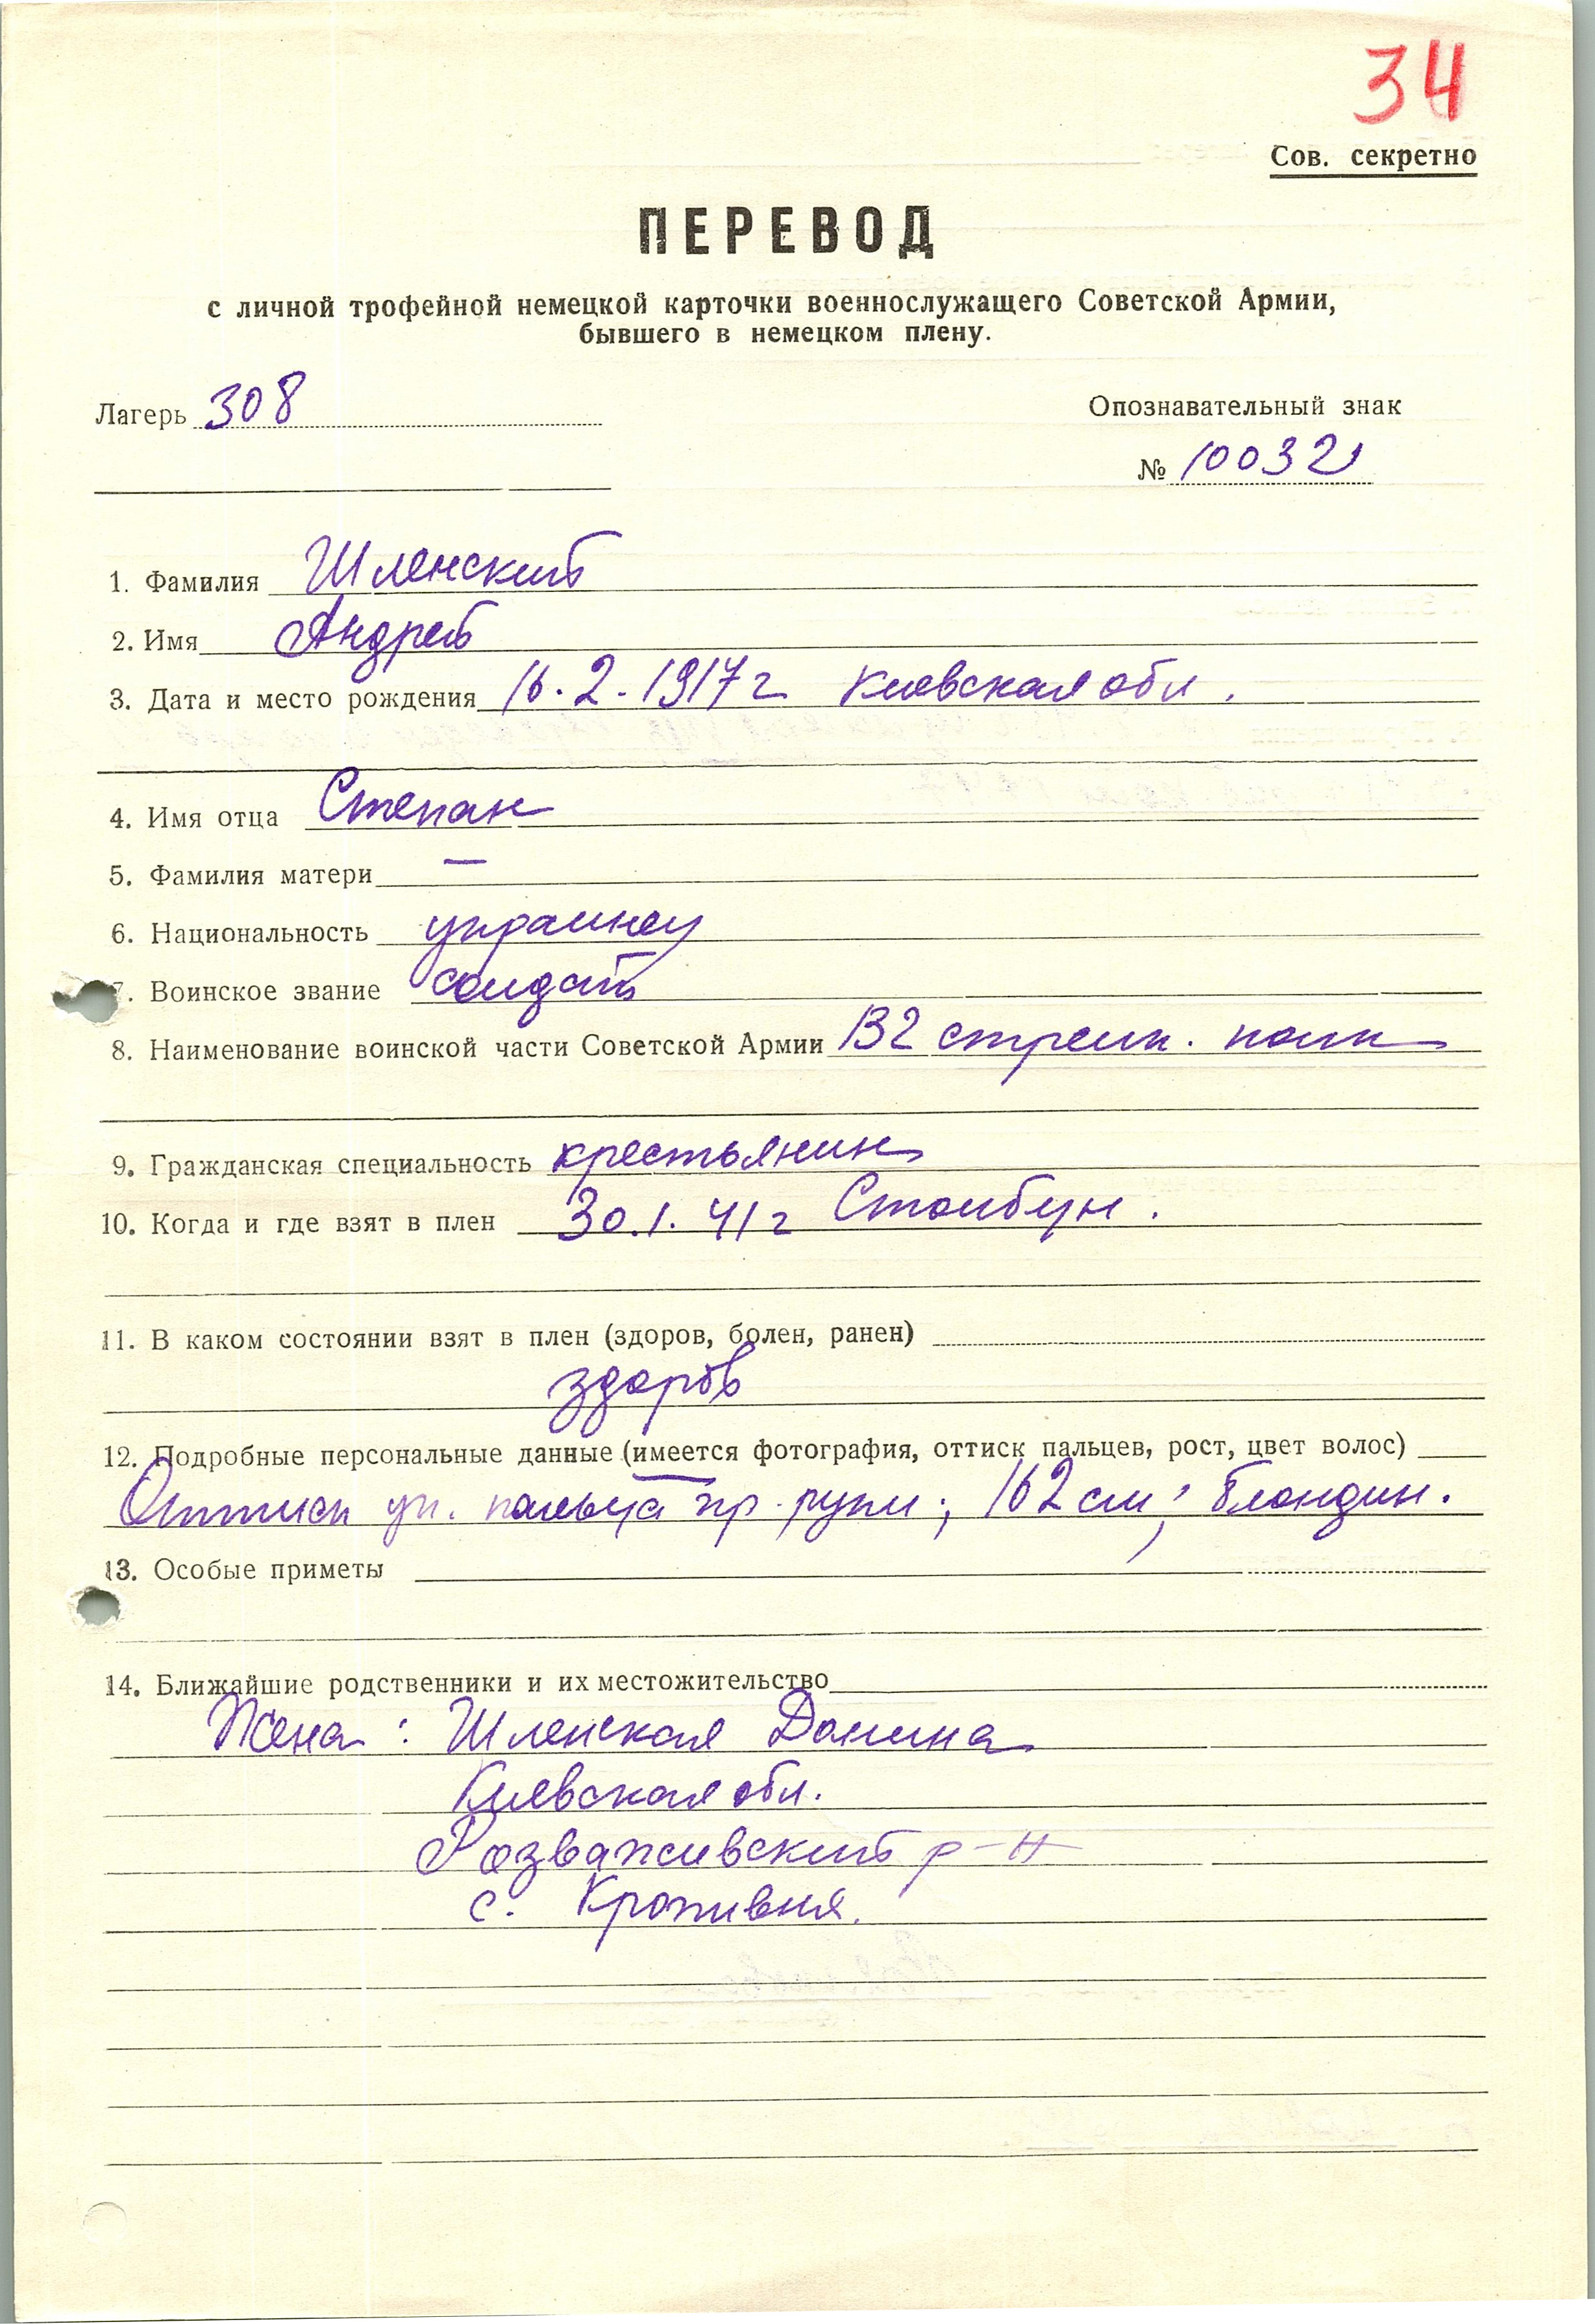 34
Сов. секретно
ПЕРЕВОД
с личной трофейной немецкой карточки военнослужащего Советской Армии,
бывшего в немецком плену.
Лагерь 308
Опознавательный знак
№ 100321
1. Фамилия Шленский
2. Имя Андрей
3. Дата и место рождения 16.2.1917 г Киевская обл.
4. Имя отца Степан
5. Фамилия матери —
6. Национальность украинец
7. Воинское звание солдат
8. Наименование воинской части Советской Армии 132 стрелк. полк
9. Гражданская специальность крестьянин
10. Когда и где взят в плен 30.1.41 г Столбун.
11. В каком состоянии взят в плен (здоров, болен, ранен)
здоров
12. Подробные персональные данные (имеется фотография, оттиск пальцев, рост, цвет волос)
Оттиск ук. пальца пр. руки; 162 см; блондин.
13. Особые приметы
14. Ближайшие родственники и их местожительство
Жена: Шленская Домина
Киевская обл.
Розваживский р-н
с. Кропивня.